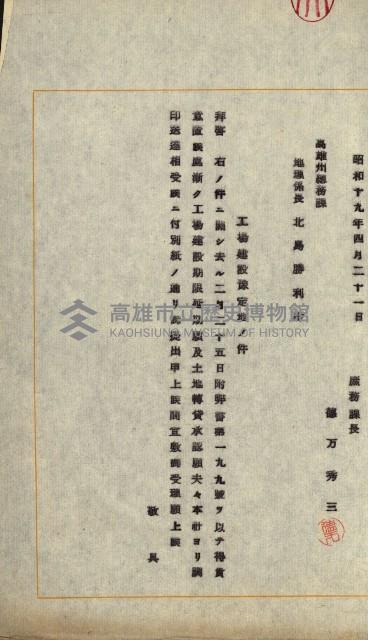 昭和十九年四月二十一日
庶務課長
德万秀三
高雄州總務課
地理係長 北島勝利
工場建設豫定地ノ件
拜啓 右ノ件ニ關シ去ル二月二十五日附弊書第一九九號ヲ以テ得貴
意置候處漸ク工場建設期限延期願及土地轉貸承認願夫々本社ヨリ調
印送達相受候ニ付別紙ノ通リ提出申上候間宜敷御受理願上候
敬具
高雄市立歷史博物館
KAOHSIUNG MUSEUM OF HISTORY